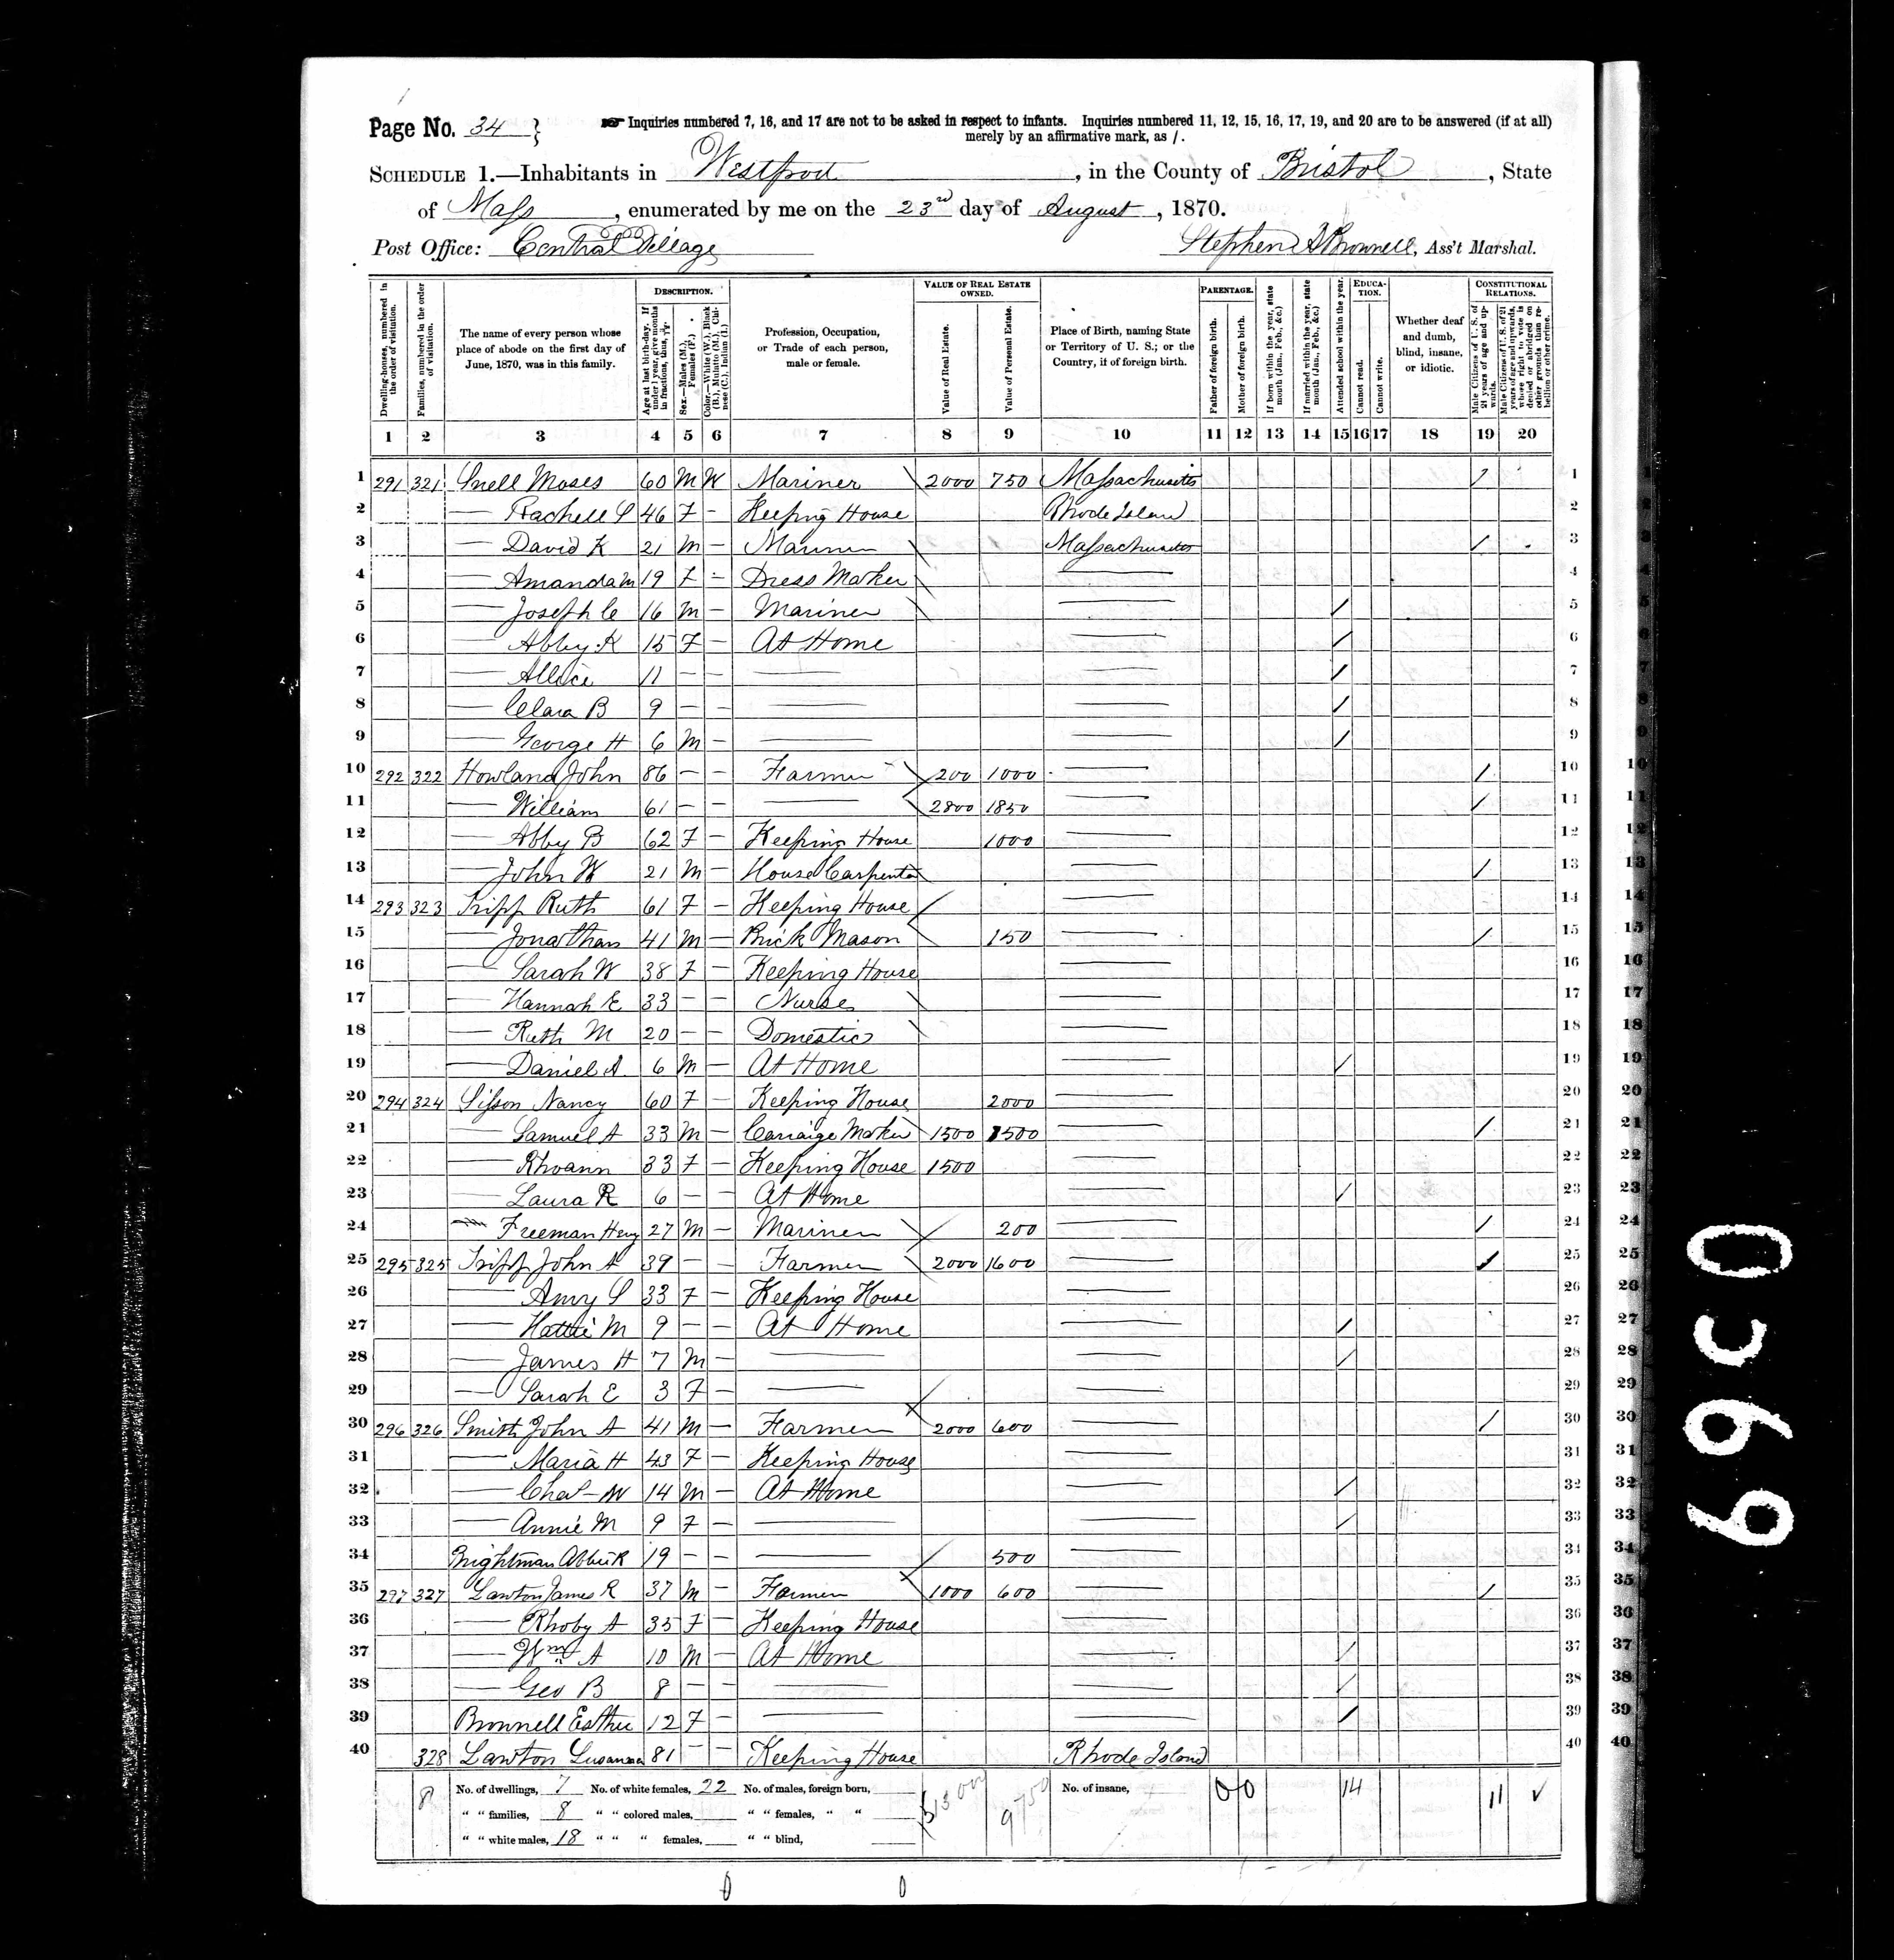 Page No. 34 }
Inquiries numbered 7, 16, and 17 are not to be asked in respect to infants. Inquiries numbered 11, 12, 15, 16, 17, 19, and 20 are to be answered (if at all)
merely by an affirmative mark, as /.
SCHEDULE 1.—Inhabitants in Westport, in the County of Bristol, State
of Mass, enumerated by me on the 23rd day of August, 1870.
Post Office: Central Village
Stephen A Brownell, Ass't Marshal.
Dwelling-houses, numbered in the order of visitation.
Families, numbered in the order of visitation.
The name of every person whose place of abode on the first day of June, 1870, was in this family.
DESCRIPTION.
Age at last birth-day. If under 1 year, give months in fractions, thus,
Sex.—Males (M.), Females (F.)
Color.—White (W.), Black (B.), Mulatto (M.), Chinese (C.), Indian (I.)
Profession, Occupation, or Trade of each person, male or female.
VALUE OF REAL ESTATE OWNED.
Value of Real Estate.
Value of Personal Estate.
Place of Birth, naming State or Territory of U. S.; or the Country, if of foreign birth.
PARENTAGE.
Father of foreign birth.
Mother of foreign birth.
If born within the year, state month (Jan., Feb., &c.)
If married within the year, state month (Jan., Feb., &c.)
Attended school within the year.
EDUCATION.
Cannot read.
Cannot write.
Whether deaf and dumb, blind, insane, or idiotic.
CONSTITUTIONAL RELATIONS.
Male Citizens of U. S. of 21 years of age and upwards.
Male Citizens of U. S. of 21 years of age and upwards, whose right to vote is denied or abridged on other grounds than rebellion or other crime.
1 2 3 4 5 6 7 8 9 10 11 12 13 14 15 16 17 18 19 20
1 291 321 Snell Moses 60 M W Mariner 2000 750 Massachusetts / 1
2 — Rachell S 46 F – Keeping House Rhode Island 2
3 — David K 21 M – Mariner Massachusetts / 3
4 — Amanda M 19 F – Dress Maker — 4
5 — Joseph C 16 M – Mariner — / 5
6 — Abby K 15 F – At Home — / 6
7 — Allice 11 – – — — / 7
8 — Clara B 9 – – — — / 8
9 — George H 6 M – — — / 9
10 292 322 Howland John 86 – – Farmer 200 1000 — / 10
11 — William 61 – – — 2800 1850 — / 11
12 — Abby B 62 F – Keeping House 1000 — 12
13 — John W 21 M – House Carpenter — / 13
14 293 323 Tripp Ruth 61 F – Keeping House — 14
15 — Jonathan 41 M – Brick Mason 150 — / 15
16 — Sarah W 38 F – Keeping House — 16
17 — Hannah E 33 – – Nurse — 17
18 — Ruth M 20 – – Domestic — 18
19 — Daniel A 6 M – At Home — / 19
20 294 324 Sisson Nancy 60 F – Keeping House 2000 — 20
21 — Samuel A 33 M – Carraige Maker 1500 1500 — / 21
22 — Rhoann 33 F – Keeping House 1500 — 22
23 — Laura R 6 – – At Home — / 23
24 Freeman Heny 27 M – Mariner 200 — / 24
25 295 325 Tripp John A 39 – – Farmer 2000 1600 — / 25
26 — Amy S 33 F – Keeping House — 26
27 — Hattie M 9 – – At Home — / 27
28 — James H 7 M – — — / 28
29 — Sarah E 3 F – — — 29
30 296 326 Smith John A 41 M – Farmer 2000 600 — / 30
31 — Maria H 43 F – Keeping House — 31
32 — Chas W 14 M – At Home — / 32
33 — Annie M 9 F – — — / 33
34 Brightman Abbie R 19 – – — 500 — 34
35 297 327 Lawton James R 37 M – Farmer 1000 600 — / 35
36 — Rhoby A 35 F – Keeping House — 36
37 — Wm A 10 M – At Home — / 37
38 — Geo B 8 – – — — / 38
39 Brownell Esther 12 F – — — / 39
40 328 Lawton Susanna 81 – – Keeping House Rhode Island 40
8 No. of dwellings, 7 No. of white females, 22 No. of males, foreign born, No. of insane, 00 14 11 ✓
" " families, 8 " " colored males, " " females, " "
" " white males, 18 " " " females, " " blind,
13000 9750
69C0